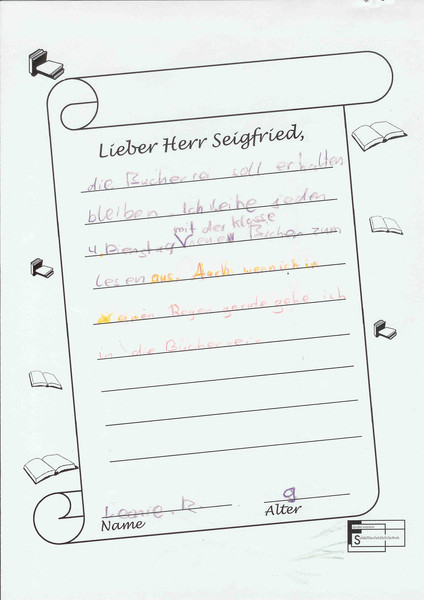 Lieber Herr Seigfried,
die Bücherei soll erhalten
bleiben. Ich leihe jeden
mit der Klasse
4. Dienstag neue Bücher zum
lesen aus. Auch wenn ich in
einen Regen gerade gehe ich
in die Bücherei.
Leonie R. 9
Name Alter